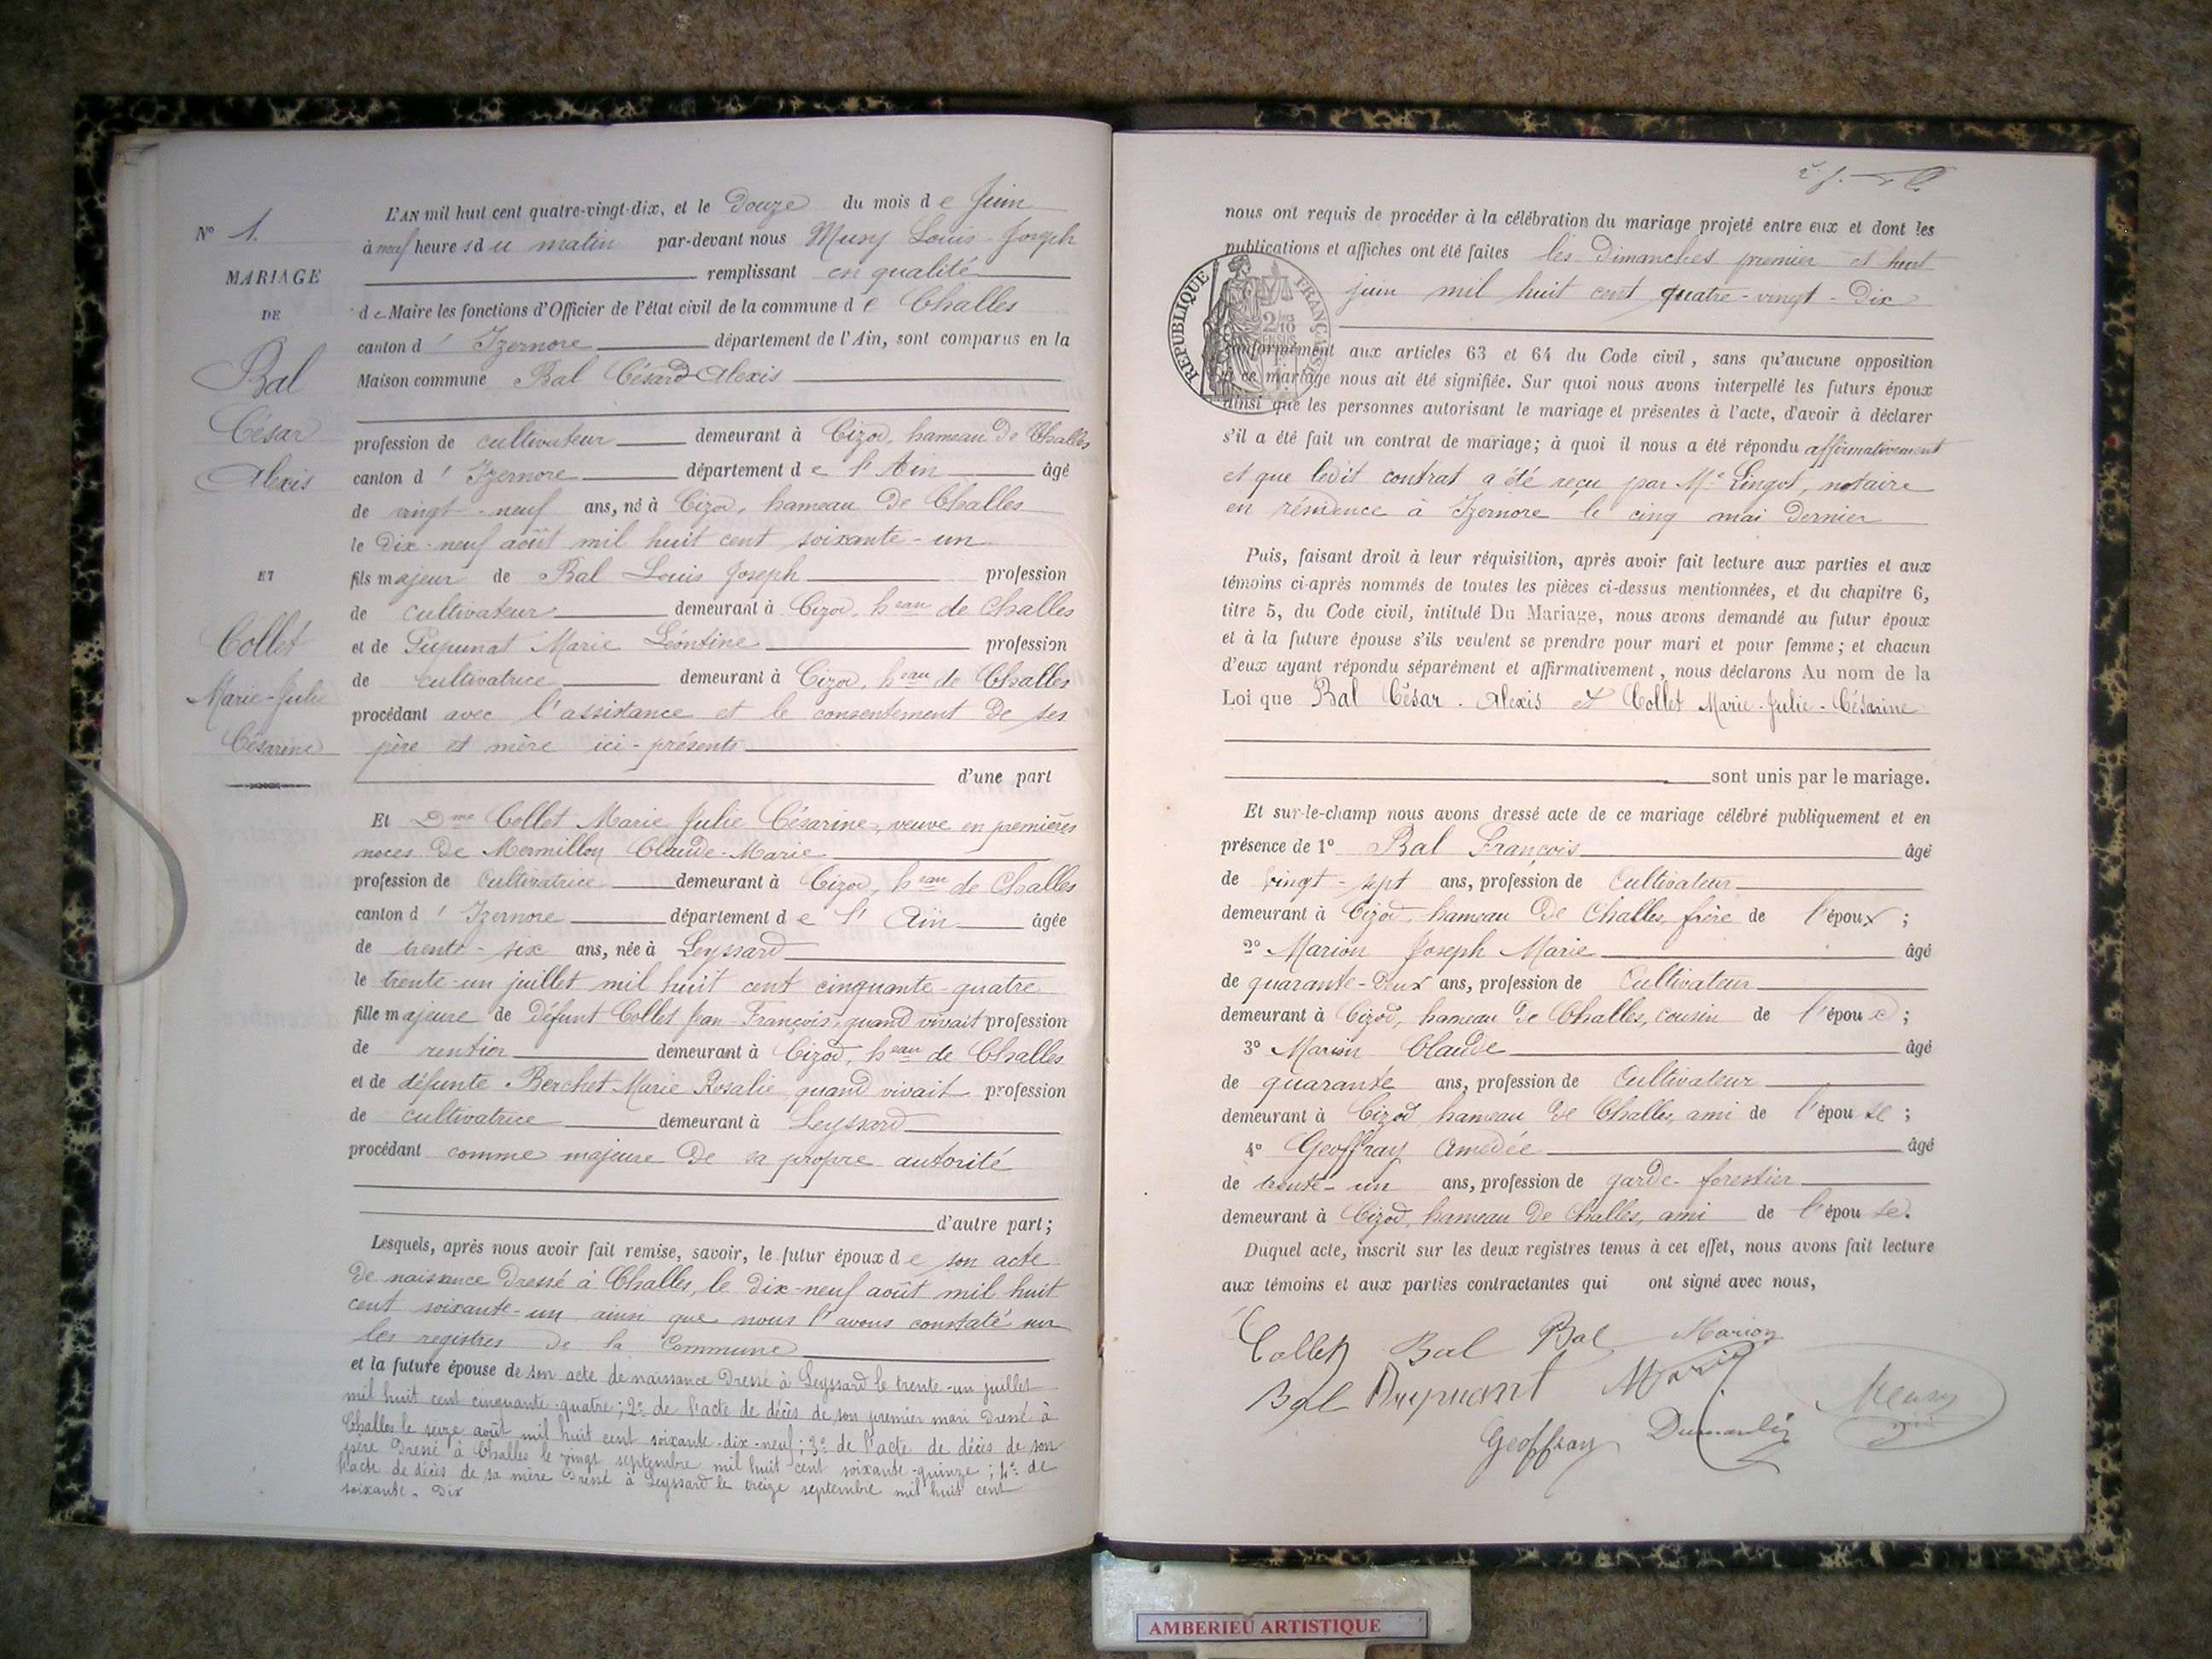 N° 1.
MARIAGE
DE
Bal
César
Alexis
ET
Collet
Marie-Julie
Césarine
L'AN mil huit cent quatre-vingt-dix, et le Douze du mois de Juin
à neuf heures du matin par-devant nous Musy Louis-Joseph
remplissant en qualité
de Maire les fonctions d'Officier de l'état civil de la commune de Challes
canton d'Izernore département de l'Ain, sont comparus en la
Maison commune Bal César Alexis
profession de cultivateur demeurant à Cizod, hameau de Challes
canton d'Izernore département de l'Ain âgé
de vingt-neuf ans, né à Cizod, hameau de Challes
le Dix-neuf août mil huit cent soixante-un
fils majeur de Bal Louis Joseph profession
de cultivateur demeurant à Cizod, heau de Challes
et de Pupunat Marie Léontine profession
de cultivatrice demeurant à Cizod, heau de Challes
procédant avec l'assistance et le consentement de ses
père et mère ici-présents
d'une part
Et Dme Collet Marie Julie Césarine, veuve en premières
noces de Mermillon Claude-Marie
profession de Cultivatrice demeurant à Cizod, heau de Challes
canton d'Izernore département de l'Ain âgée
de trente-six ans, née à Leyssard
le trente-un juillet mil huit cent cinquante-quatre
fille majeure de Défunt Collet Jean-François, quand vivait profession
de rentier demeurant à Cizod, heau de Challes
et de défunte Berchet Marie Rosalie quand vivait profession
de cultivatrice demeurant à Leyssard
procédant comme majeure de sa propre autorité
d'autre part;
Lesquels, après nous avoir fait remise, savoir, le futur époux de son acte
de naissance Dressé à Challes, le dix-neuf août mil huit
cent soixante-un ainsi que nous l'avons constaté sur
les registres de la Commune
et la future épouse de son acte de naissance Dressé à Leyssard le trente-un juillet
mil huit cent cinquante-quatre; 2° de l'acte de décès de son premier mari Dressé à
Challes le seize août mil huit cent soixante-dix-neuf; 3° de l'acte de décès de son
père Dressé à Challes le vingt septembre mil huit cent soixante-quinze; 4° de
l'acte de décès de sa mère Dressé à Leyssard le treize septembre mil huit cent
soixante-Dix
nous ont requis de procéder à la célébration du mariage projeté entre eux et dont les
publications et affiches ont été faites les Dimanches premier et huit
juin mil huit cent quatre-vingt-Dix
REPUBLIQUE FRANÇAISE
conformément aux articles 63 et 64 du Code civil, sans qu'aucune opposition
à ce mariage nous ait été signifiée. Sur quoi nous avons interpellé les futurs époux
ainsi que les personnes autorisant le mariage et présentes à l'acte, d'avoir à déclarer
s'il a été fait un contrat de mariage; à quoi il nous a été répondu affirmativement
et que ledit contrat a été reçu par Me Lingot, notaire
en résidence à Izernore le cinq mai dernier
Puis, faisant droit à leur réquisition, après avoir fait lecture aux parties et aux
témoins ci-après nommés de toutes les pièces ci-dessus mentionnées, et du chapitre 6,
titre 5, du Code civil, intitulé Du Mariage, nous avons demandé au futur époux
et à la future épouse s'ils veulent se prendre pour mari et pour femme; et chacun
d'eux ayant répondu séparément et affirmativement, nous déclarons Au nom de la
Loi que Bal César-Alexis et Collet Marie-Julie-Césarine
sont unis par le mariage.
Et sur-le-champ nous avons dressé acte de ce mariage célébré publiquement et en
présence de 1° Bal François âgé
de vingt-sept ans, profession de Cultivateur
demeurant à Cizod, hameau de Challes, frère de l'époux;
2° Marion Joseph Marie âgé
de quarante-Deux ans, profession de Cultivateur
demeurant à Cizod, hameau de Challes, cousin de l'épou ;
3° Marion Claude âgé
de quarante ans, profession de Cultivateur
demeurant à Cizod, hameau de Challes, ami de l'épouse;
4° Geoffray Amédée âgé
de trente-un ans, profession de garde-forestier
demeurant à Cizod, hameau de Challes, ami de l'épouse.
Duquel acte, inscrit sur les deux registres tenus à cet effet, nous avons fait lecture
aux témoins et aux parties contractantes qui ont signé avec nous,
Collet Bal Bal Marion
Bal Musy
Geoffray
AMBERIEU ARTISTIQUE